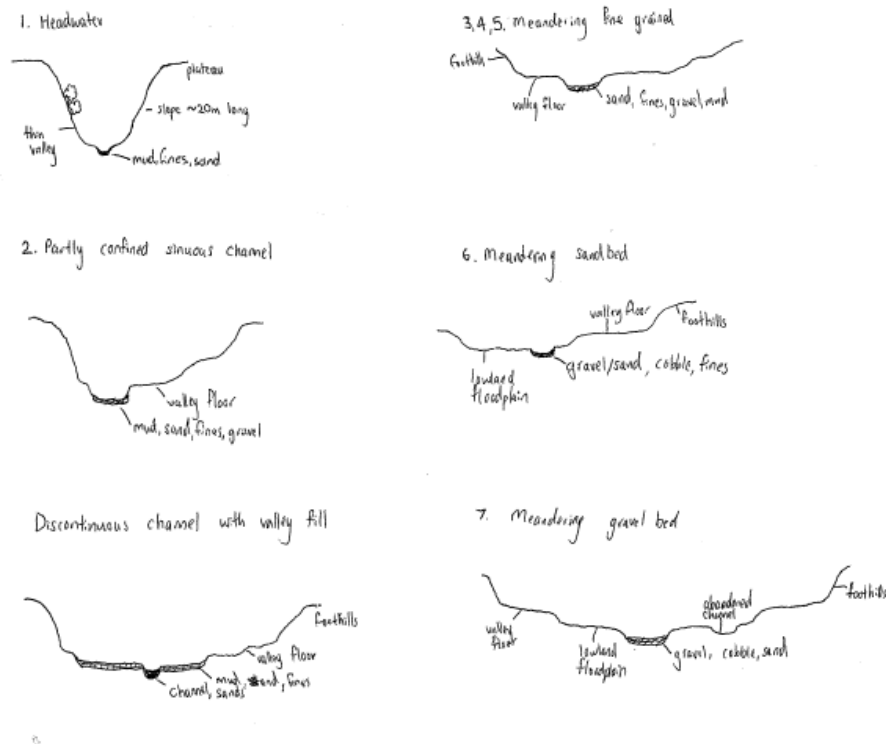 1. Headwater
plateau
slope ~20m long
thin
valley
mud, fines, sand
2. Partly confined sinuous channel
valley floor
mud, sand, fines, gravel
Discontinuous channel with valley fill
foothills
valley floor
mud, sand, fines
channel, sands
3,4,5. Meandering fine grained
foothills
valley floor
sand, fines, gravel, mud
6. Meandering sandbed
valley floor
foothills
lowland
floodplain
gravel/sand, cobble, fines
7. Meandering gravel bed
foothills
abandoned
channel
valley
floor
lowland
floodplain
gravel, cobble, sand